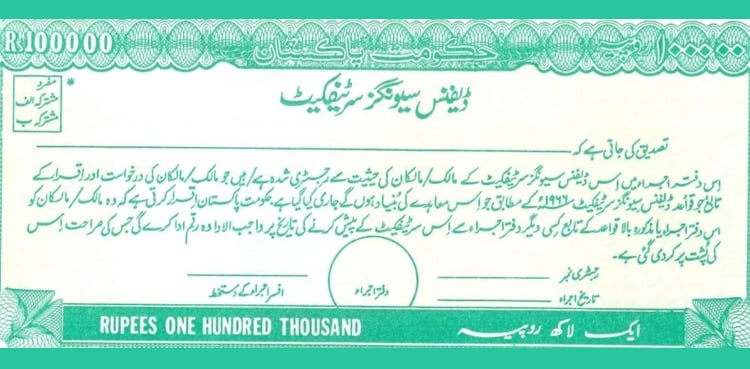 Rs 100000
حکومت پاکستان
روپیہ ۱۰۰۰۰۰
*
مفرد
مشترکہ الف
مشترکہ ب
ڈیفنس سیونگز سرٹیفکیٹ
تصدیق کی جاتی ہے کہ
اِس دفتر اجراء میں اِس ڈیفنس سیونگز سرٹیفکیٹ کے مالک/مالکان کی حیثیت سے رجسٹری شدہ ہے/ہیں جو مالک/مالکان کی درخواست اور اقرار کے
تابع جو قواعد ڈیفنس سیونگز سرٹیفکیٹ ۱۹۶۶ء کے مطابق جو اِس معاہدے کی بُنیاد ہوں گے جاری کیا گیا ہے۔ حکومت پاکستان اقرار کرتی ہے کہ وہ مالک/مالکان کو
اِس دفتر اجراء یا مذکورہ بالا قواعد کے تابع کسی دیگر دفتر اجراء سے اِس سرٹیفکیٹ کے پیش کرنے کی تاریخ پر واجب الادا وہ رقم ادا کرے گی جس کی صراحت اِس
کی پُشت پر کر دی گئی ہے۔
رجسٹری نمبر
تاریخ اجراء
دفتر اجراء
افسر اجراء کے دستخط
RUPEES ONE HUNDRED THOUSAND
ایک لاکھ روپیہ